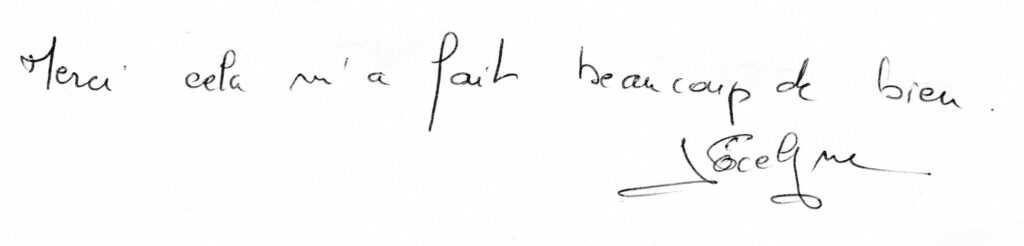 Merci cela m'a fait beaucoup de bien.
Jocelyne